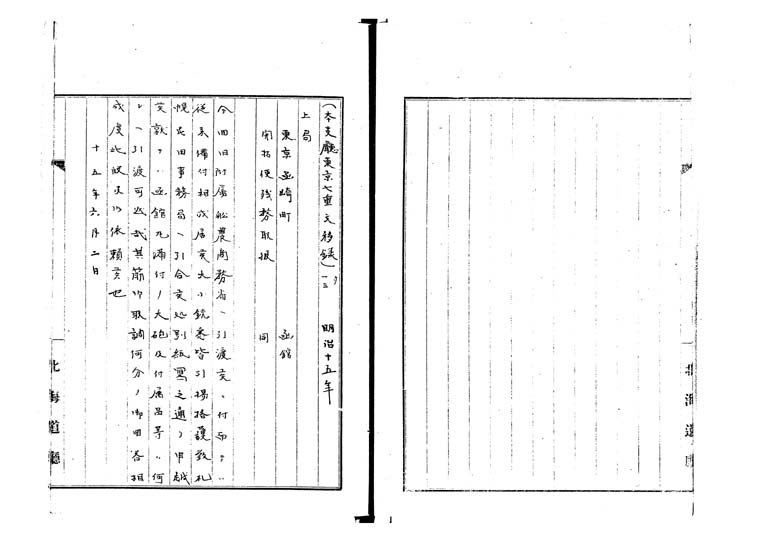 (本支廳東京七重文移録)
明治十五年
上局
東京函崎町 函館
開拓使残務取扱 同
今回旧附属船農商務省ヘ引渡支ニ付而ハ
従来備付相成居支大小銃悉皆引揚格護致札
幌元旧事務局ヘ引合支処別紙写之通リ申越
支就テハ函館丸備付ノ大砲及付属品等ハ何
レヘ引渡可然哉其筋御取調何分ノ御回答相
成度此段及御依頼支也
十五年六月二日
北海道廳
北海道廳